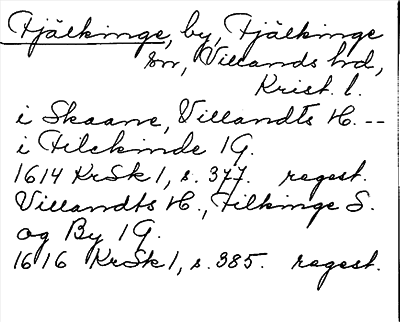 Fjälkinge, by, Fjälkinge
sn, Villands hd,
Krist. l.
i Skaane, Villandts H. --
i Filckinde 1 G.
1614 KrSk 1, s. 377. regest.
Villandts H., Filkinge S.
og By 1 G.
1616 KrSk 1, s. 385. regest.